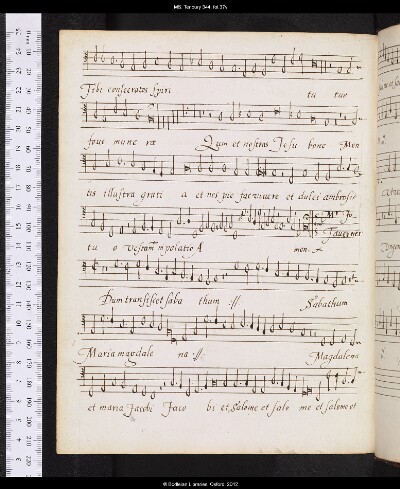 MS. Tenbury 344, fol. 37v
Tibi consecratos spiri tu tuo
fove mune re Quin et nostras Jesu bone Men
tis illustra grati a et nos pie fac vivere et dulci ambrosia
Mr Jo.
Taverner
tu o A men.
Dum transisset saba thum :// Sabathum
Maria magdale na :// Magdalena
et maria Jacobi Jaco bi et Salome et salo me et salome et
© Bodleian Libraries, Oxford, 2012